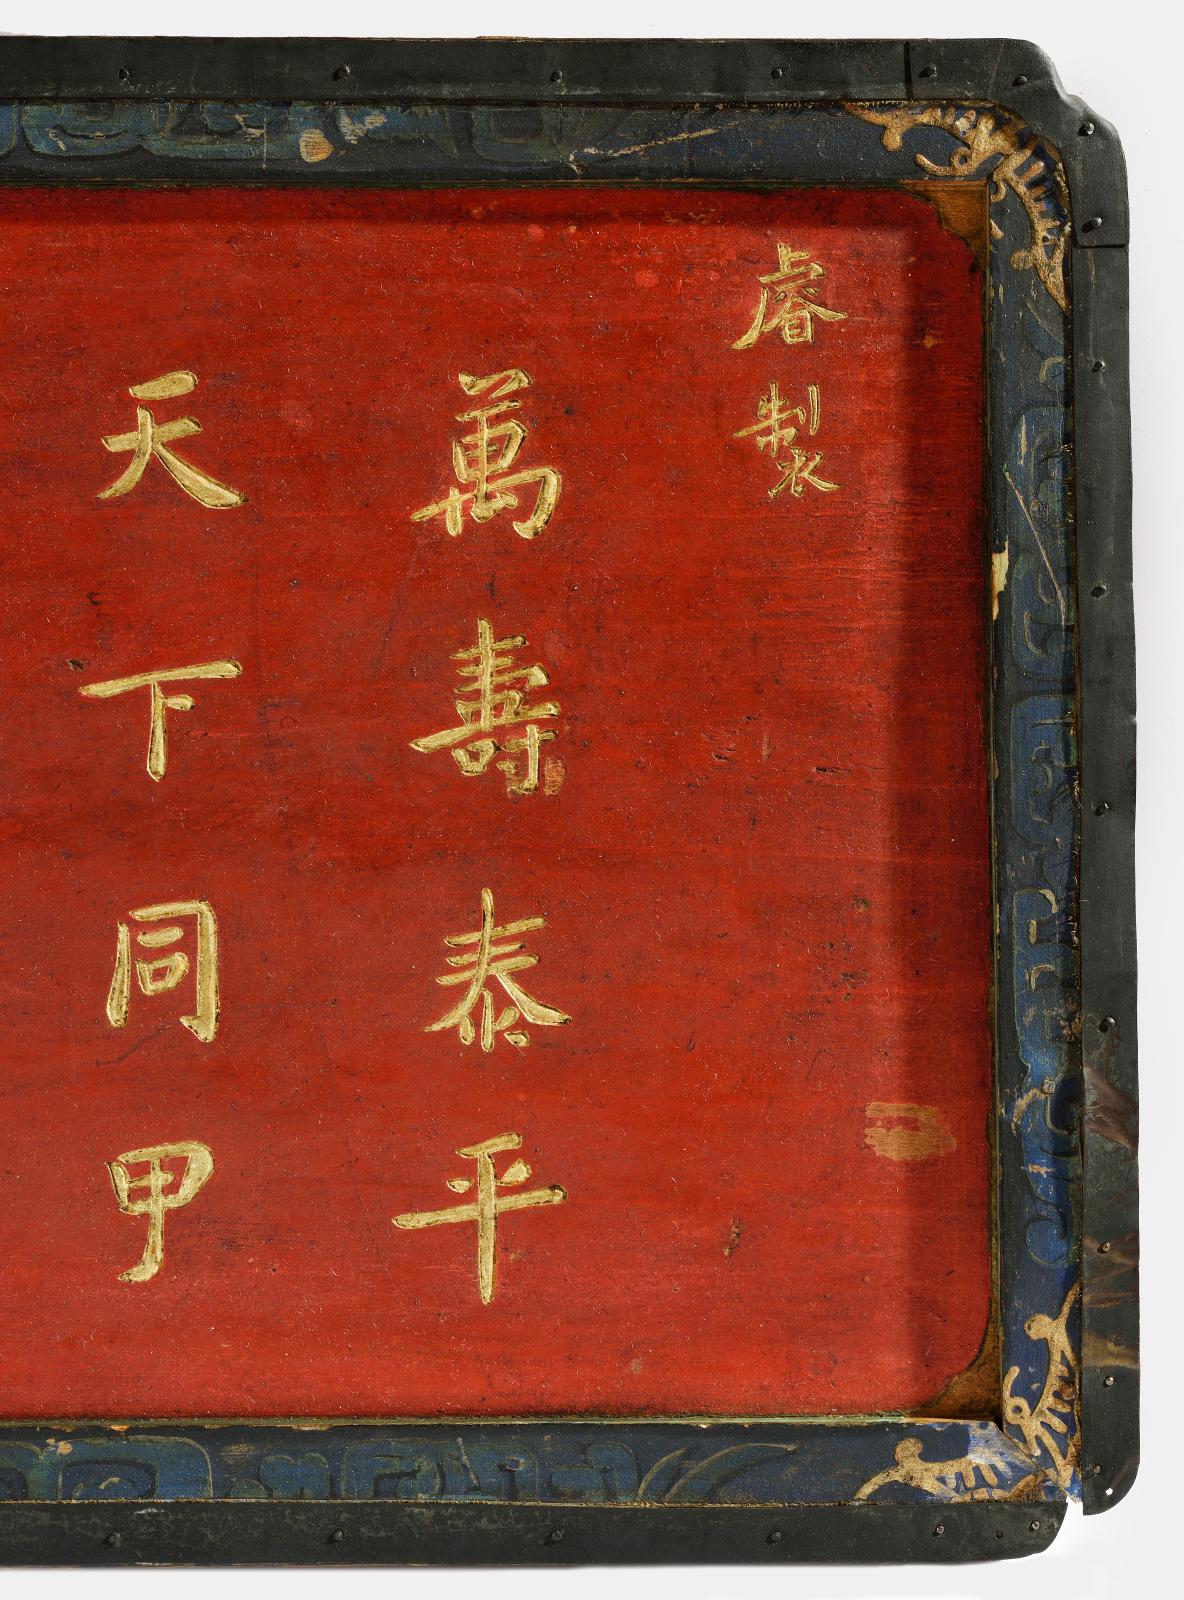 睿製
萬壽泰平
天下同甲